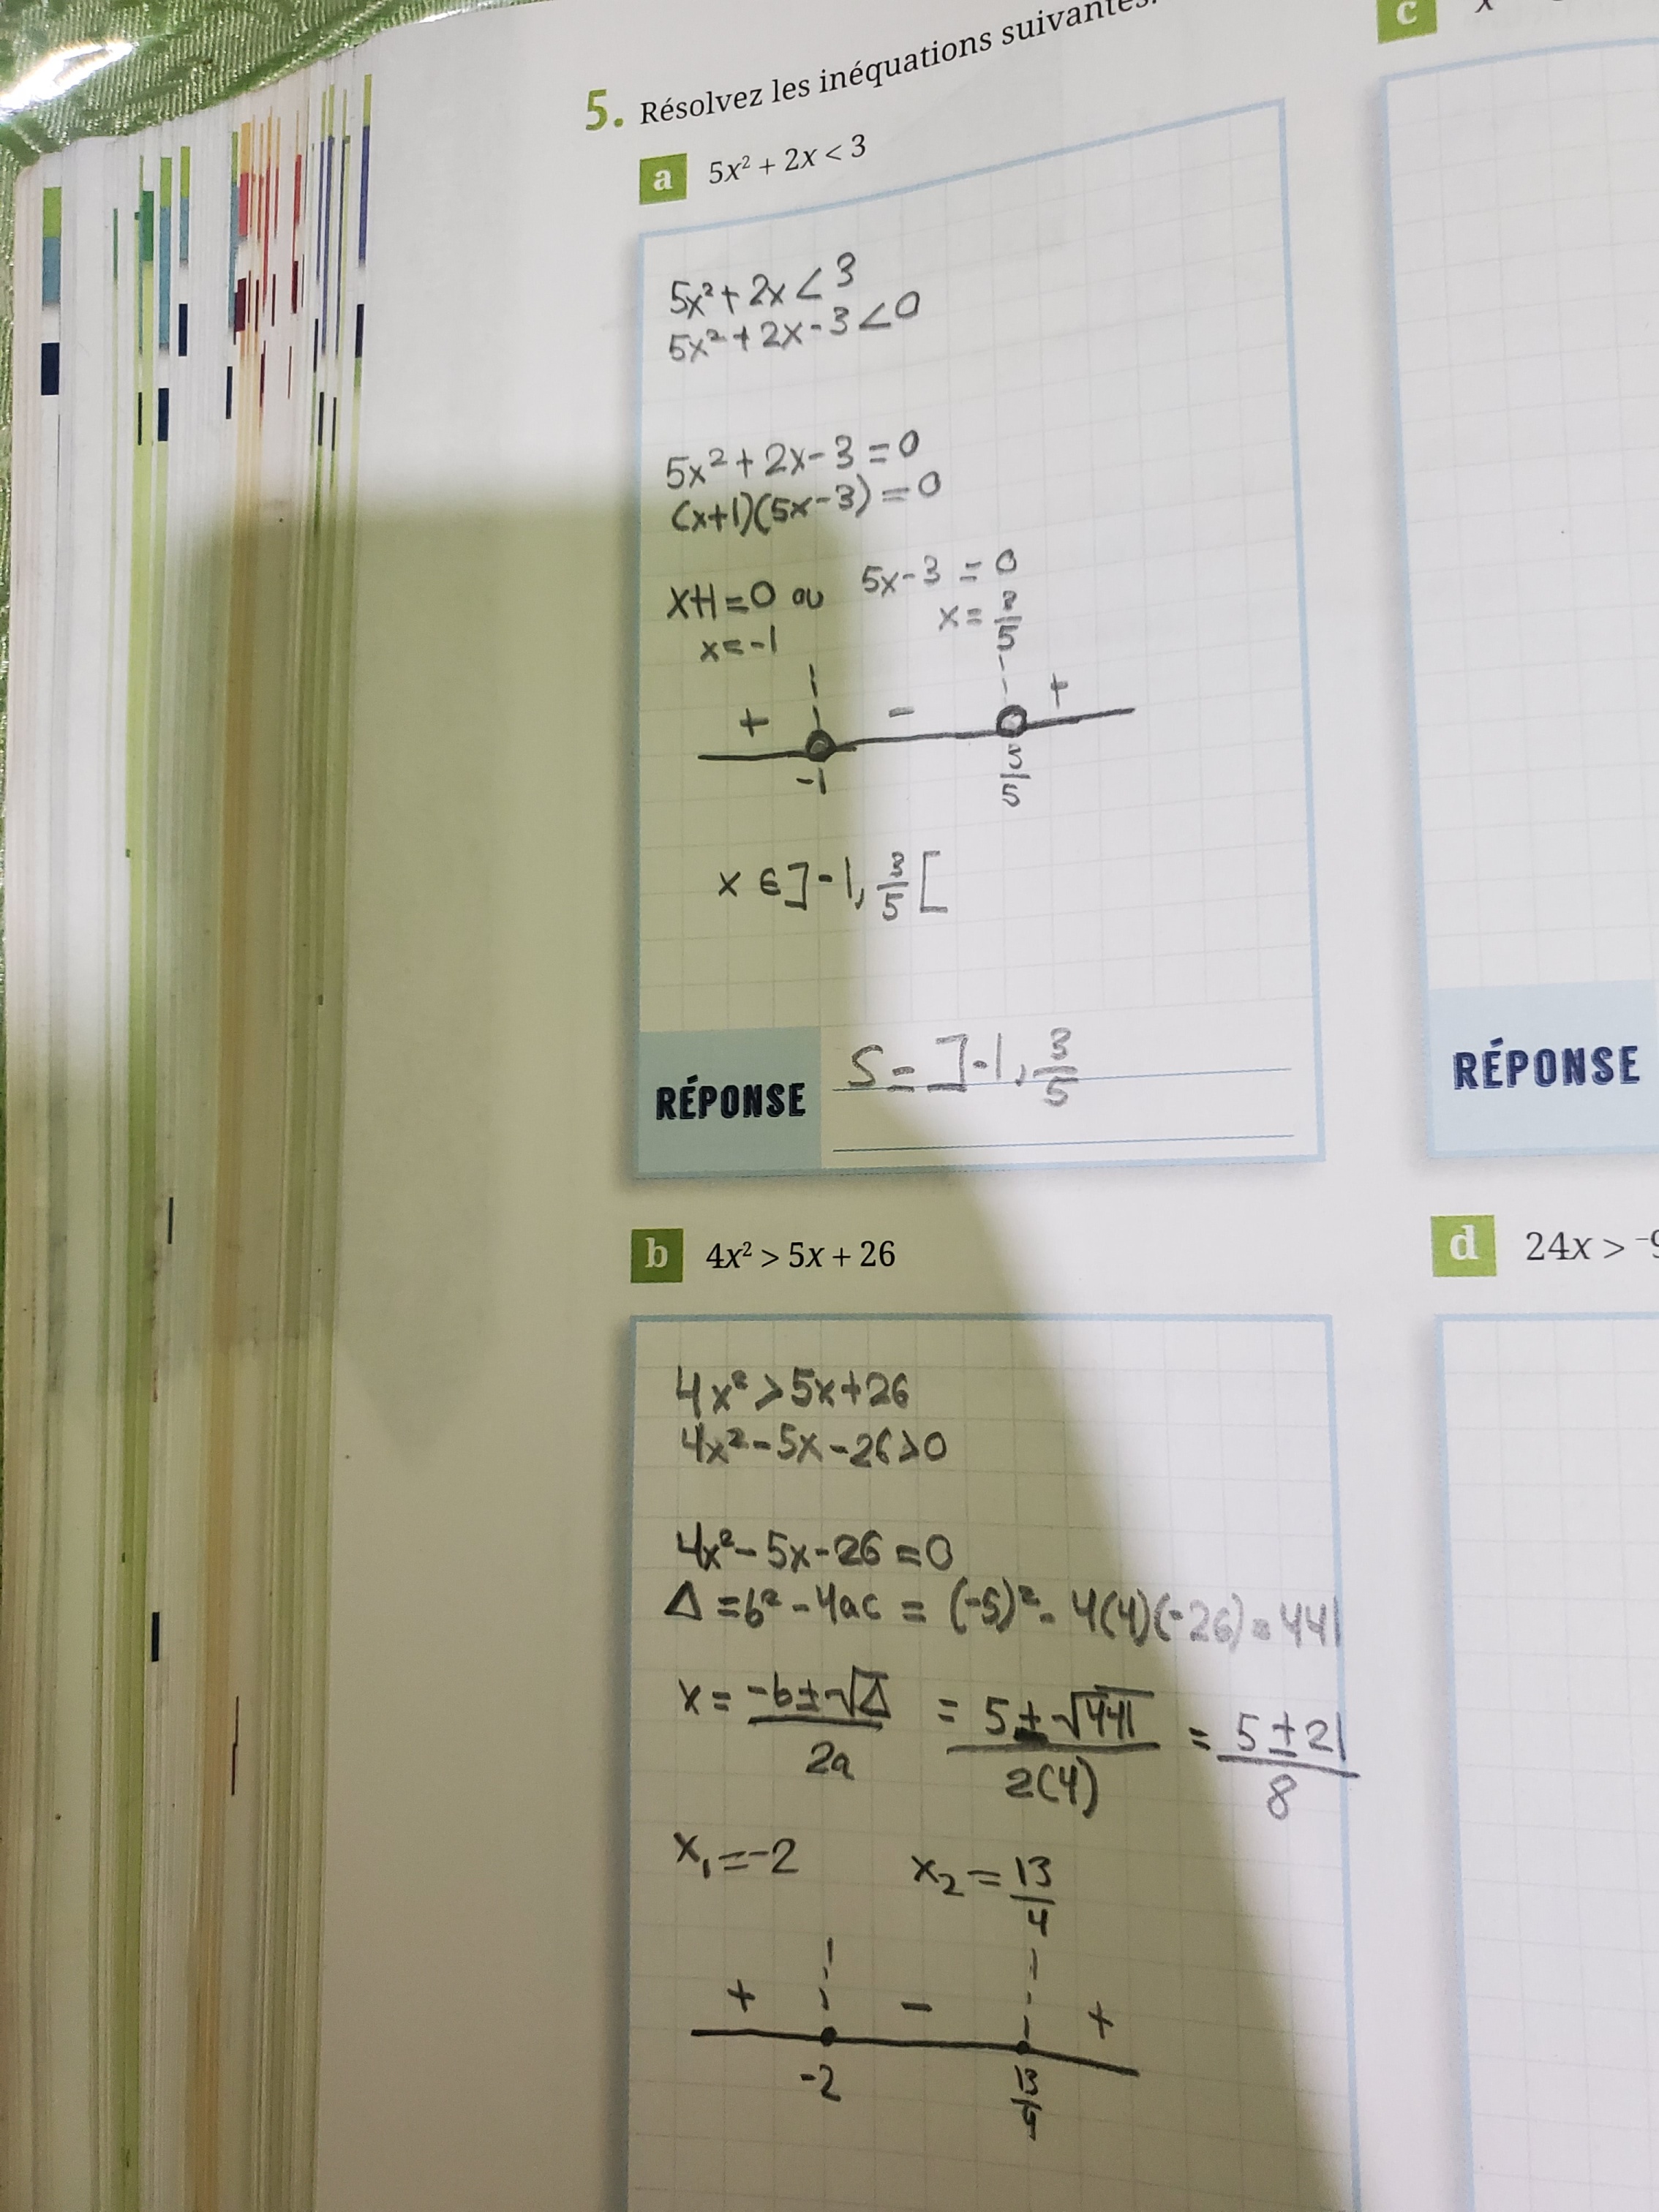 5. Résolvez les inéquations suivantes.
a 5x² + 2x < 3
5x²+2x<3
5x²+2x-3<0
5x²+2x-3=0
(x+1)(5x-3)=0
x+1=0 ou 5x-3=0
x=-1 x=3/5
+ - +
-1 3/5
x∈]-1, 3/5[
RÉPONSE S=]-1, 3/5
b 4x² > 5x + 26
4x²>5x+26
4x²-5x-26>0
4x²-5x-26=0
Δ=b²-4ac=(-5)²-4(4)(-26)=441
x=-b±√Δ/2a = 5±√441/2(4) = 5±21/8
x₁=-2 x₂=13/4
+ - +
-2 13/4
c x
RÉPONSE
d 24x > ⁻9